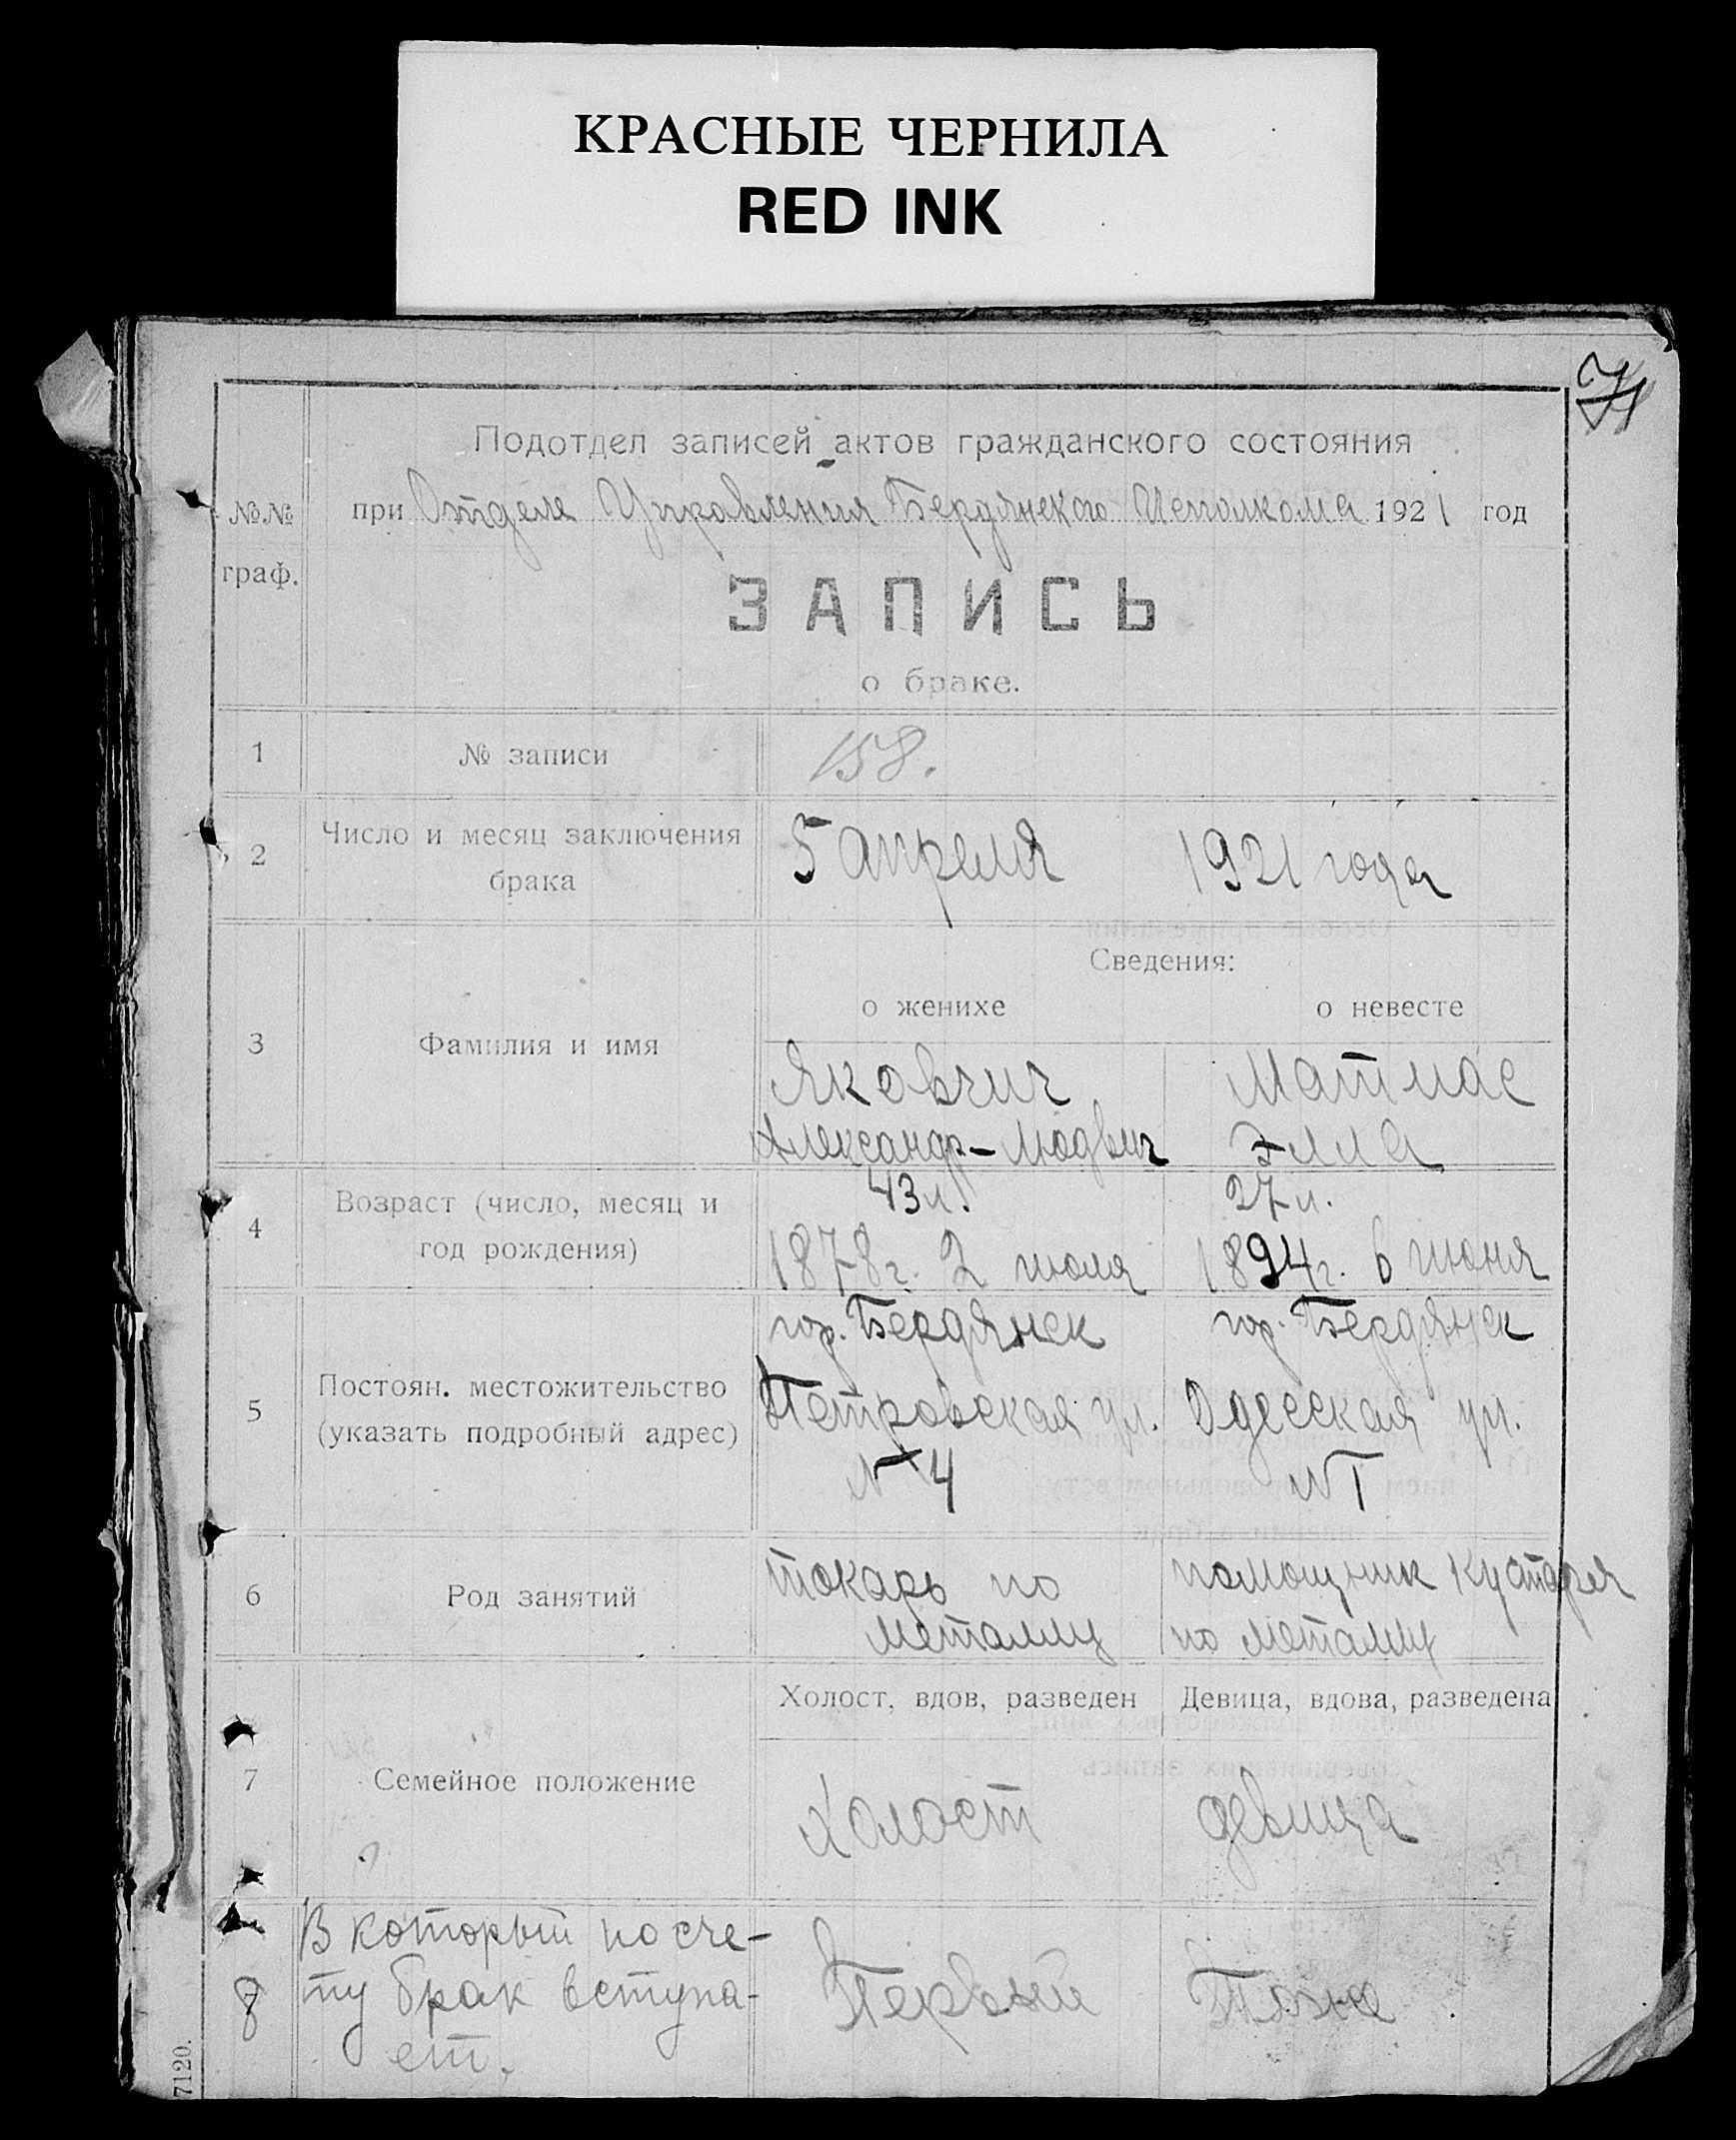 КРАСНЫЕ ЧЕРНИЛА
RED INK
71
Подотдел записей актов гражданского состояния
№№ граф.
при Отделе Управления Бердянского Исполкома 1921 год
ЗАПИСЬ
о браке.
1 № записи 158.
2 Число и месяц заключения брака 5 апреля 1921 года
Сведения:
о женихе о невесте
3 Фамилия и имя
Яковчич Матиас
Александр-Людвиг Элла
4 Возраст (число, месяц и год рождения)
43 л. 27 л.
1878 г. 2 июля 1894 г. 6 июня
5 Постоян. местожительство (указать подробный адрес)
гор. Бердянск гор. Бердянск
Петровская ул. Одесская ул.
№ 4 №
6 Род занятий
токарь по помощник кустаря
металлу по металлу
Холост, вдов, разведен Девица, вдова, разведена
7 Семейное положение
Холост девица
8 В который по сче-
ту брак вступа-
ет.
Первый Тоже
7120.